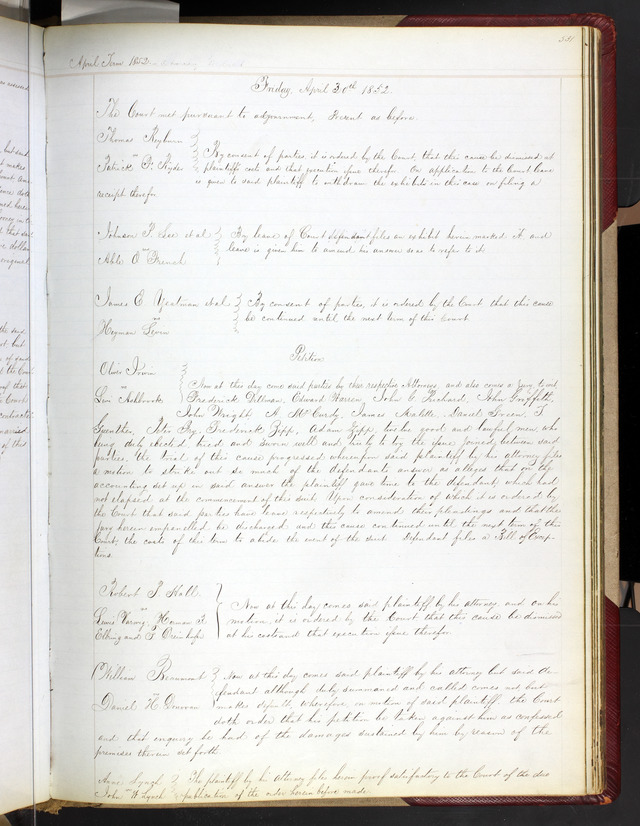 531
April Term 1852
Friday, April 30th 1852
The Court met pursuant to adjournment, Present as before.
Thomas Reyburn
vs
Patrick F. Ryder
By consent of parties, it is ordered by the Court, that this cause be dismissed at
plaintiffs costs and that execution issue therefor. On application to the Court leave
is given to said plaintiff to withdraw the exhibits in this case on filing a
receipt therefor.
Johnson P. Lee et al
vs
O French
By leave of Court defendant files an exhibit herein marked A. and
leave is given him to amend his answer so as to refer to it.
James E Yeatman et al
vs
Heyman Levin
By consent of parties, it is ordered by the Court that this cause
be continued until the next term of this Court.
Petition
Oliver Irwin
vs
Levi Ashbrook
Now at this day come said parties by their respective Attorneys, and also comes a jury to wit
Frederick Dittman, Edward Warren, John C Richard, John Griffith,
John Wright, A. McCurdy, James Daniel Green, T
Guenther, Peter Frederick Zepp, Adam Zepp, twelve good and lawful men, who
being duly elected, tried and sworn well and truly to try the issue joined between said
parties, the trial of this cause progressed whereupon said plaintiff by his attorney files
a motion to strike out so much of the defendants answer as alleges that in the
accounting set up in said answer the plaintiff gave time to the defendant which had
not elapsed at the commencement of this suit. Upon consideration of which it is ordered by
the Court that said parties have leave respectively to amend their pleadings and that the
jury herein empanelled be discharged and this cause continued until the next term of this
Court, the costs of this term to abide the event of the suit. Defendant files a Bill of Excep-
tions.
Robert P. Hall
vs
Lewis Herman F.
and P.
Now at this day comes said plaintiff by his attorney, and on his
motion, it is ordered by the Court that this cause be dismissed
at his costs and that execution issue therefor.
William Beaumont
vs
Daniel H Donovan
Now at this day comes said plaintiff by his attorney but said de-
fendant although duly summoned and called comes not but
makes default, wherefore, on motion of said plaintiff the Court
doth order that his petition be taken against him as confessed
and that enquiry be had of the damages sustained by him by reason of the
premises therein set forth.
Anne Lynch
vs
John W Lynch
The plaintiff by her attorney files herein proof satisfactory to the Court of the due
publication of the order herein before made.